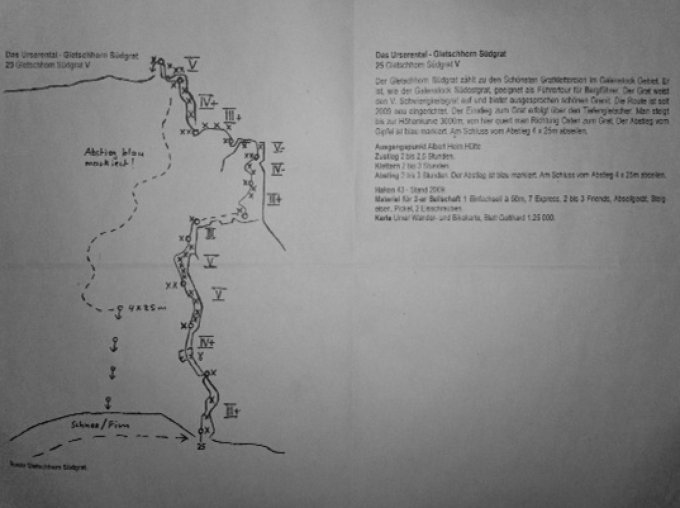 Das Urserental - Gletschhorn Südgrat
25 Gletschhorn Südgrat V
V
IV+
III+
V-
IV-
III+
III
V
V
IV+
III+
Abstieg blau
markiert!
4x25m
Schnee/Firn
25
Topo Gletschhorn Südgrat
Das Urserental - Gletschhorn Südgrat
25 Gletschhorn Südgrat V
Der Gletschhorn Südgrat zählt zu den Schönsten Gratklettereien im Galenstock Gebiet. Er
ist, wie der Galenstock Südostgrat, geeignet als Führertour für Bergführer. Der Grat weist
den V. Schwierigkeitsgrad auf und bietet ausgesprochen schönen Granit. Die Route ist seit
2009 neu eingerichtet. Der Einstieg zum Grat erfolgt über den Tiefengletscher. Man steigt
bis zur Höhenkurve 3000m, von hier quert man Richtung Osten zum Grat. Der Abstieg vom
Gipfel ist blau markiert. Am Schluss vom Abstieg 4 x 25m abseilen.
Ausgangspunkt Albert Heim Hütte
Zustieg 2 bis 2,5 Stunden.
Klettern 2 bis 3 Stunden.
Abstieg 2 bis 3 Stunden. Der Abstieg ist blau markiert. Am Schluss vom Abstieg 4 x 25m abseilen.
Haken 43 - Stand 2009
Material für 2-er Seilschaft 1 Einfachseil à 50m, 7 Express, 2 bis 3 Friends, Abseilgerät, Steig-
eisen, Pickel, 2 Eisschrauben.
Karte Urner Wander- und Bikekarte, Blatt Gotthard 1:25 000.